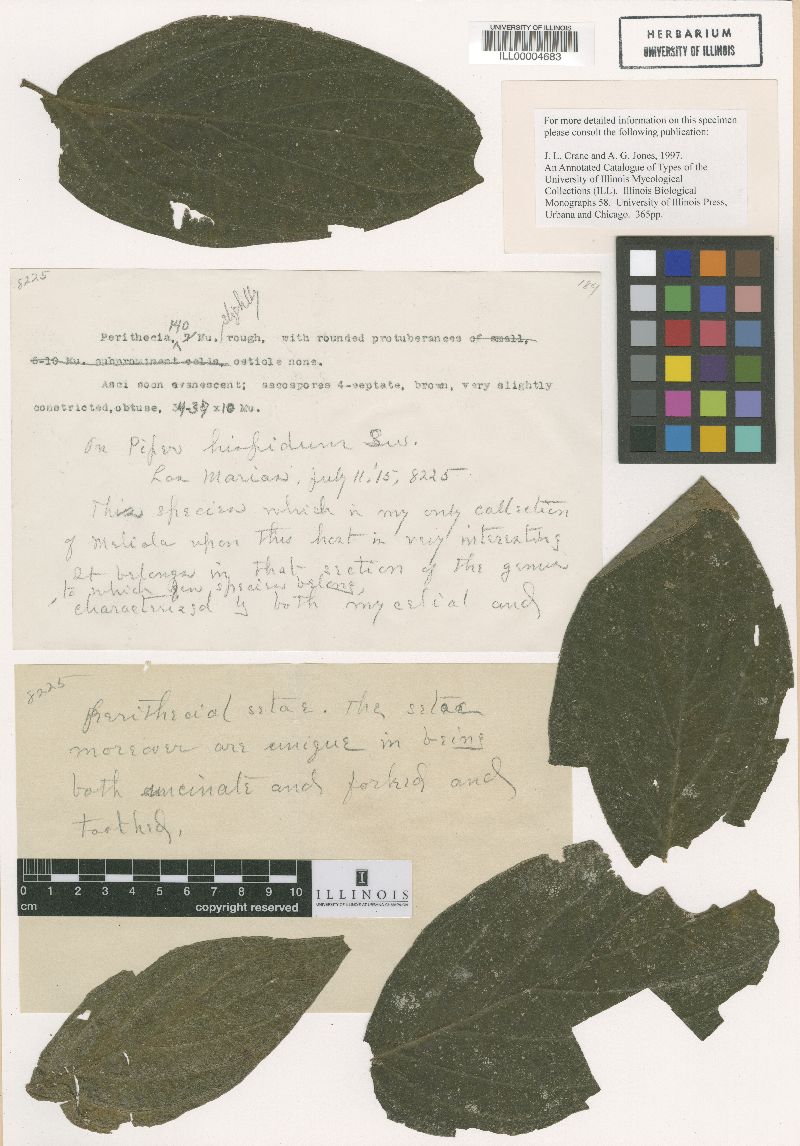 UNIVERSITY OF ILLINOIS
ILL00004683
HERBARIUM
UNIVERSITY OF ILLINOIS
For more detailed information on this specimen
please consult the following publication:
J. L. Crane and A. G. Jones, 1997.
An Annotated Catalogue of Types of the
University of Illinois Mycological
Collections (ILL). Illinois Biological
Monographs 58. University of Illinois Press,
Urbana and Chicago. 365pp.
8225
189
140 slightly
Perithecia, Mu. rough, with rounded protuberances of small,
6-10 Mu. subprominent cells, ostiole none.
Asci soon evanescent; ascospores 4-septate, brown, very slightly
constricted, obtuse, 34-37 x 10 Mu.
On Piper hispidum Sw.
Las Marias, July 11, '15, 8225
This species which is my only collection
of Meliola upon this host is very interesting
It belongs in that section of the genus
to which few species belong,
characterized by both mycelial and
8225
perithecial setae. The setae
moreover are unique in being
both uncinate and forked and
toothed.
0 1 2 3 4 5 6 7 8 9 10
cm copyright reserved
I
ILLINOIS
UNIVERSITY OF ILLINOIS AT URBANA-CHAMPAIGN